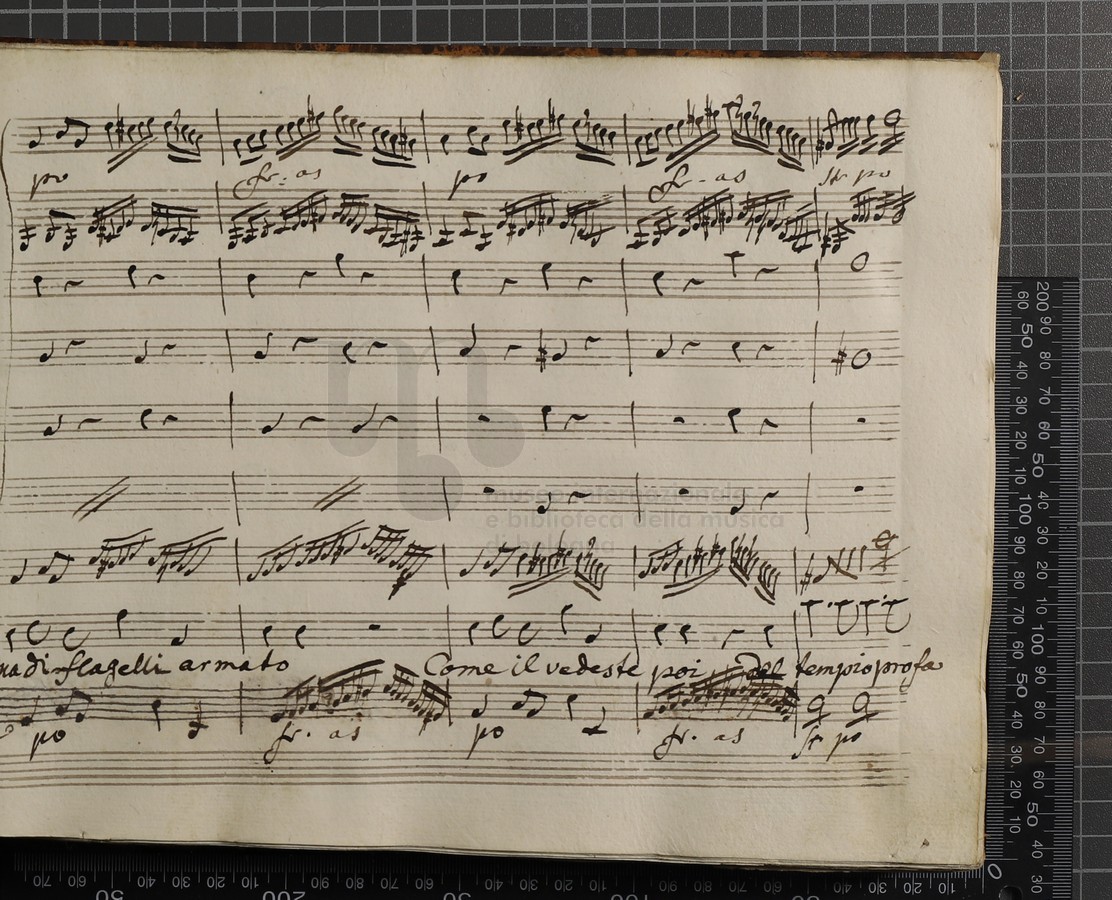 po fr: as po fr - as st po
museo internazionale
e biblioteca della musica
di bologna
na di flagelli armato Come il vedeste poi Del tempio profa
po fr. as po fr. as st po